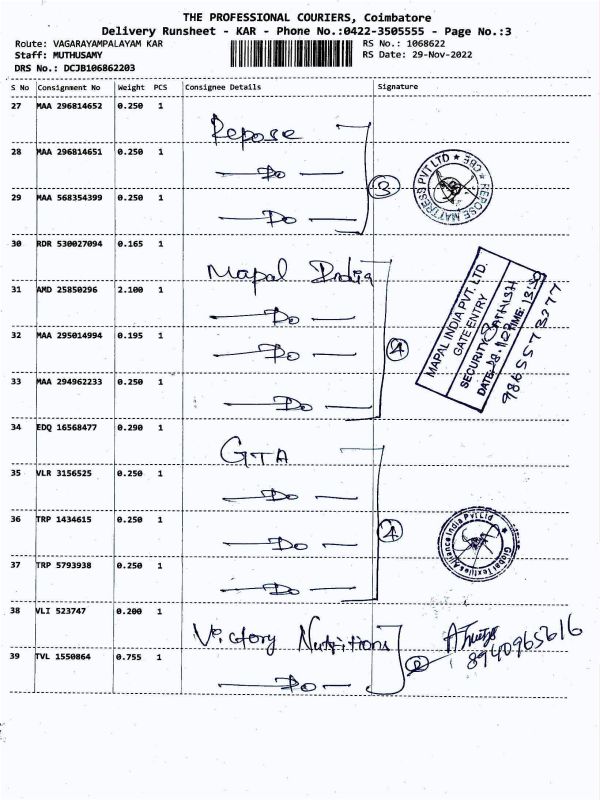 THE PROFESSIONAL COURIERS, Coimbatore
Delivery Runsheet - KAR - Phone No.:0422-3505555 - Page No.:3
Route: VAGARAYAMPALAYAM KAR RS No.: 1068622
Staff: MUTHUSAMY RS Date: 29-Nov-2022
DRS No.: DCJB106862203
S No Consignment No Weight PCS Consignee Details Signature
27 MAA 296814652 0.250 1
Repose
28 MAA 296814651 0.250 1
Do
3
REPOSE MATTRESS PVT LTD * CBE *
29 MAA 568354399 0.250 1
Do
30 RDR 530027094 0.165 1
Mapal India
31 AMD 25850296 2.100 1
Do
32 MAA 295014994 0.195 1
Do
4
MAPAL INDIA PVT. LTD.
GATE ENTRY
SECURITY: SATHISH
DATE: TIME: 13:30
9865573277
33 MAA 294962233 0.250 1
Do
34 EDQ 16568477 0.290 1
GTA
35 VLR 3156525 0.250 1
Do
36 TRP 1434615 0.250 1
Do
4
Global Textiles Alliance India Pvt Ltd
37 TRP 5793938 0.250 1
Do
38 VLI 523747 0.200 1
Victory Nutritions
2
8940965616
39 TVL 1550864 0.755 1
Do